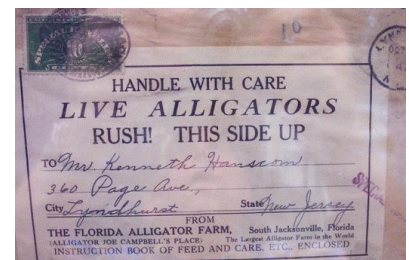 10
HANDLE WITH CARE
LIVE ALLIGATORS
RUSH! THIS SIDE UP
TO Mr. Kenneth Hanscom
360 Page Ave.,
City Lyndhurst State New Jersey
FROM
THE FLORIDA ALLIGATOR FARM, South Jacksonville, Florida
(ALLIGATOR JOE CAMPBELL'S PLACE) The Largest Alligator Farm in the World
INSTRUCTION BOOK OF FEED AND CARE, ETC., ENCLOSED